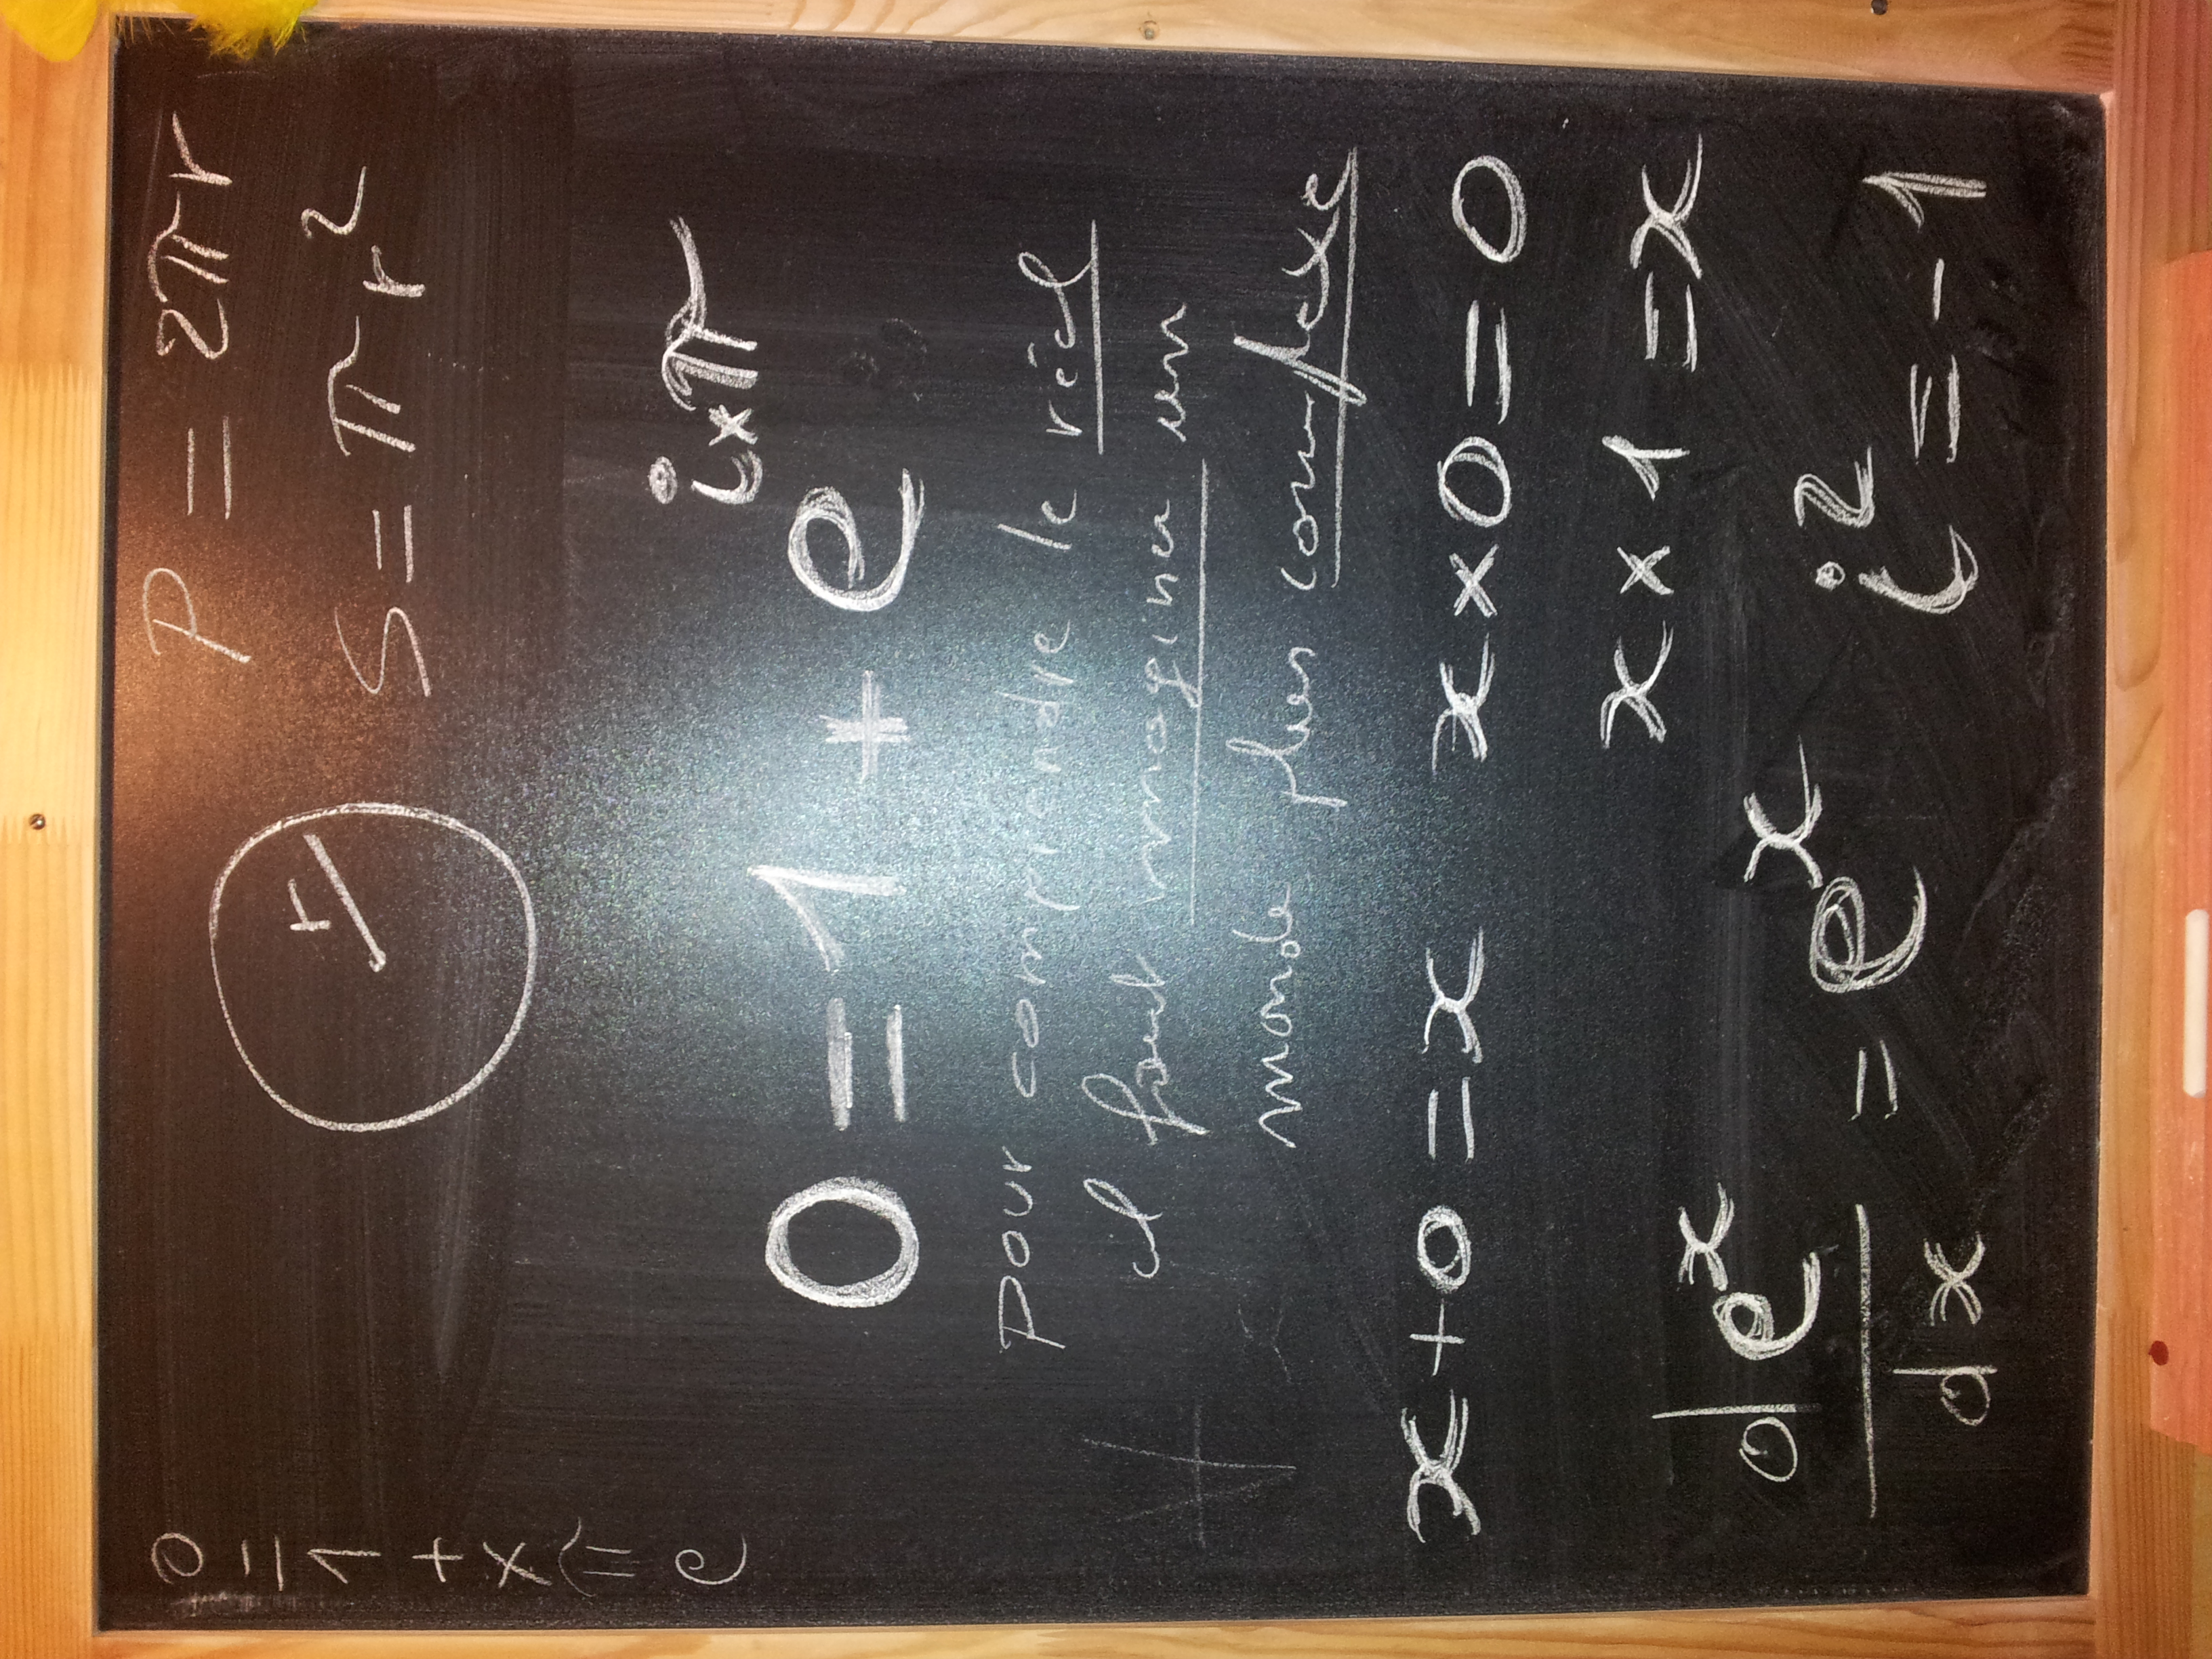 P = 2πr
r
S = πr²
0
=
1
+
x
e
0 = 1 + e^{i×π}
pour comprendre le réel
il faut imaginer un
monde plus complexe
x + 0 = x    x × 0 = 0
x × 1 = x
de^x/dx = e^x    i² = -1